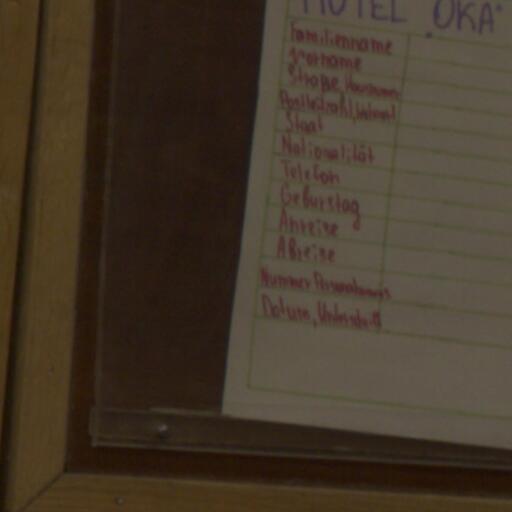 HOTEL "OKA"
Familienname
Vorname
Straße, Hausnum
Postleitzahl, Wohnort
Staat
Nationalität
Telefon
Geburstag
Anreise
Abreise
Nummer Personalausweis
Datum, Unterschrift